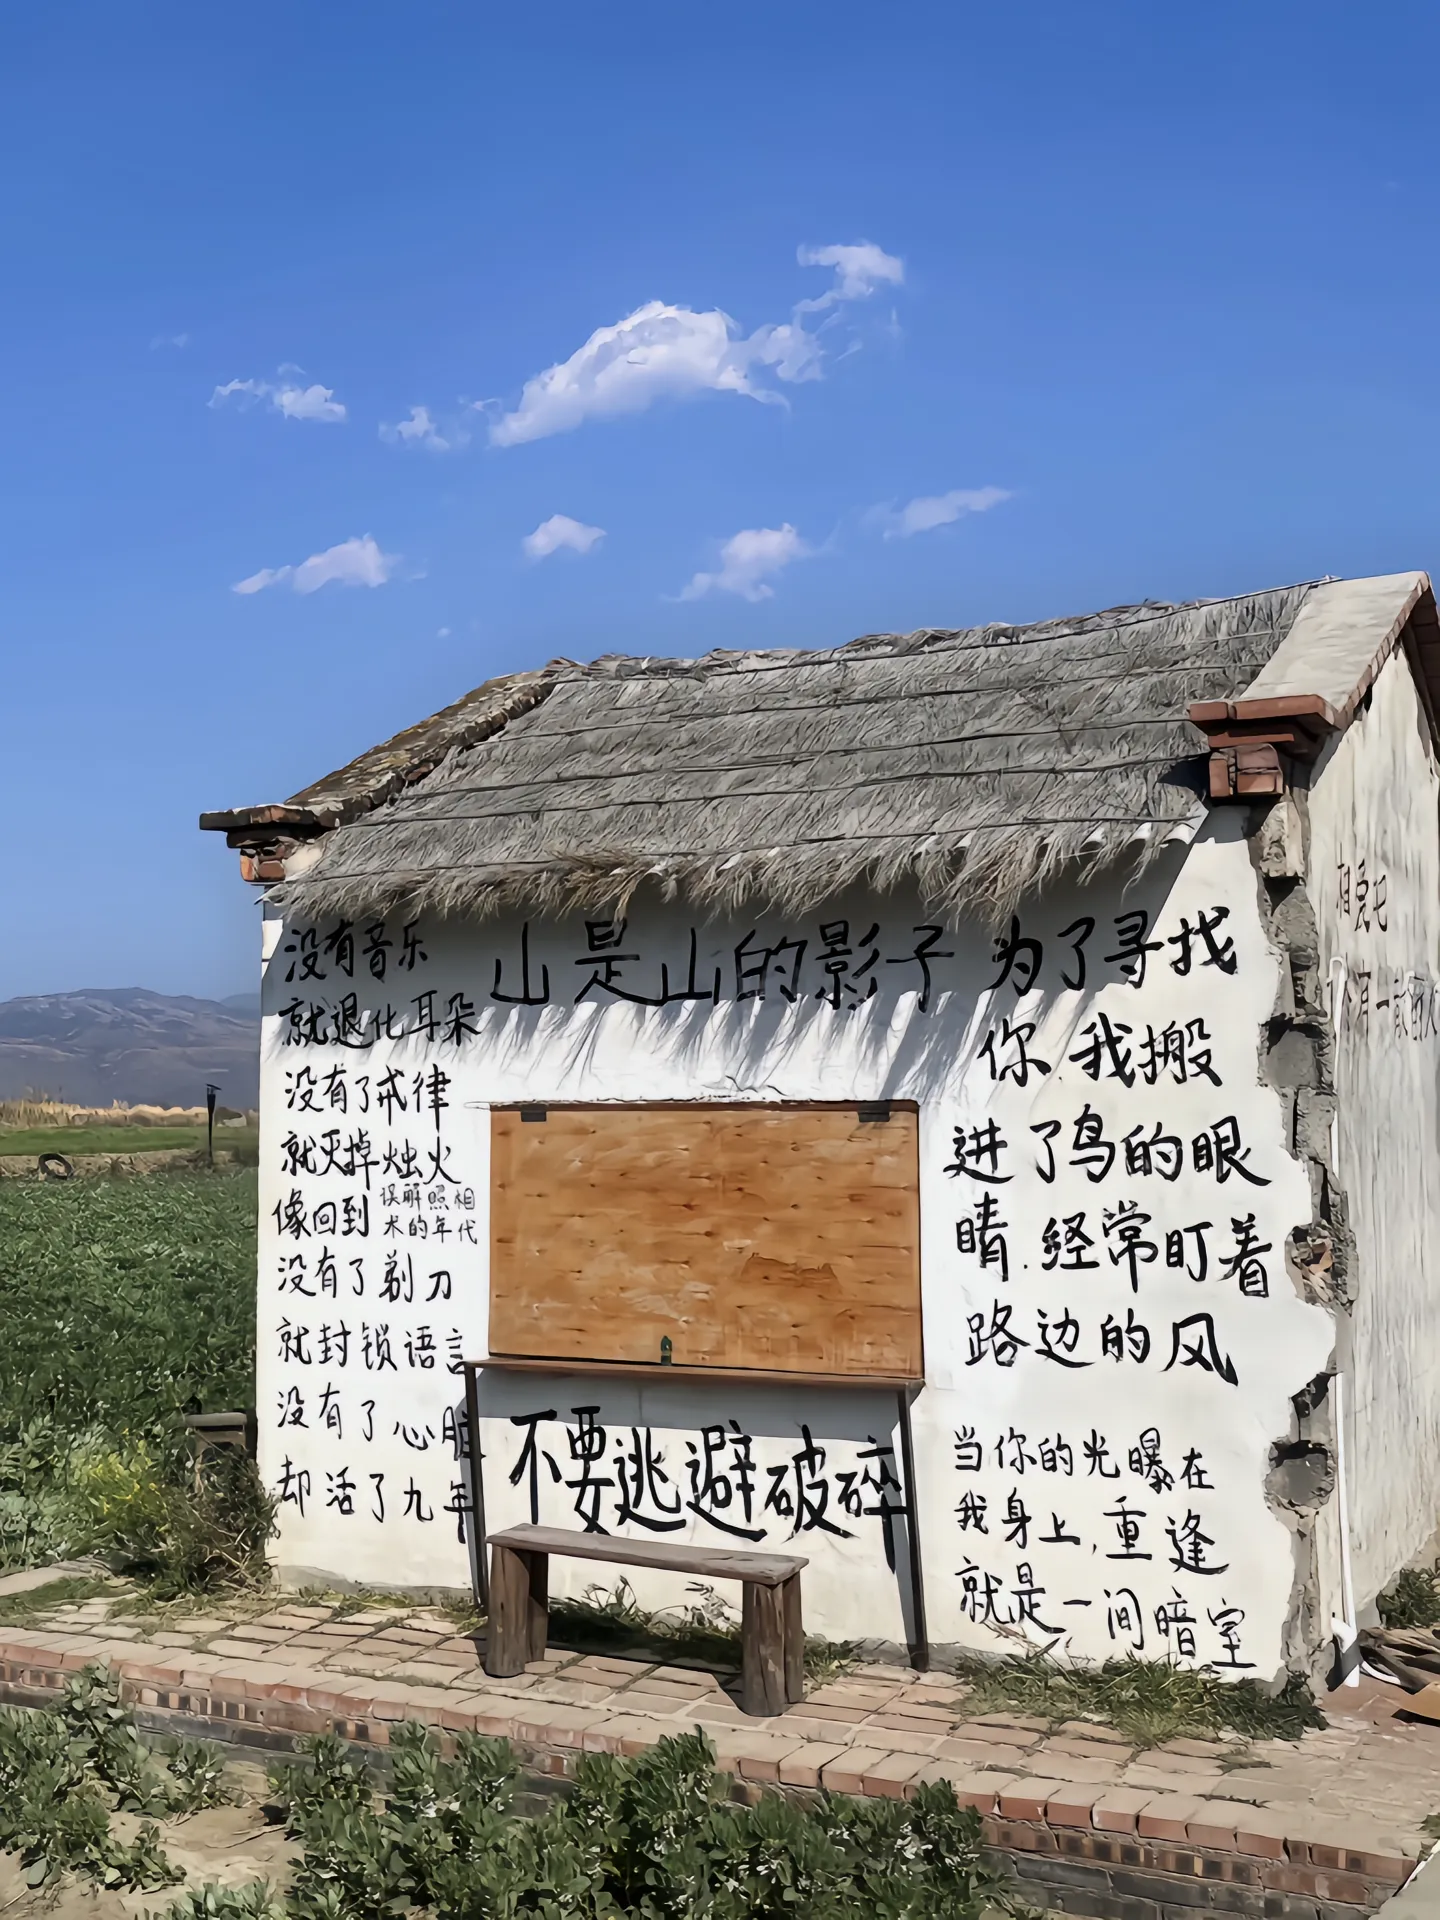 没有音乐
就退化耳朵
没有了戒律
就灭掉烛火
像回到误解照相
术的年代
没有了剃刀
就封锁语言
没有了心脏
却活了九年
山是山的影子
不要逃避破碎
为了寻找
你,我搬
进了鸟的眼
睛.经常盯着
路边的风
当你的光曝在
我身上,重逢
就是一间暗室